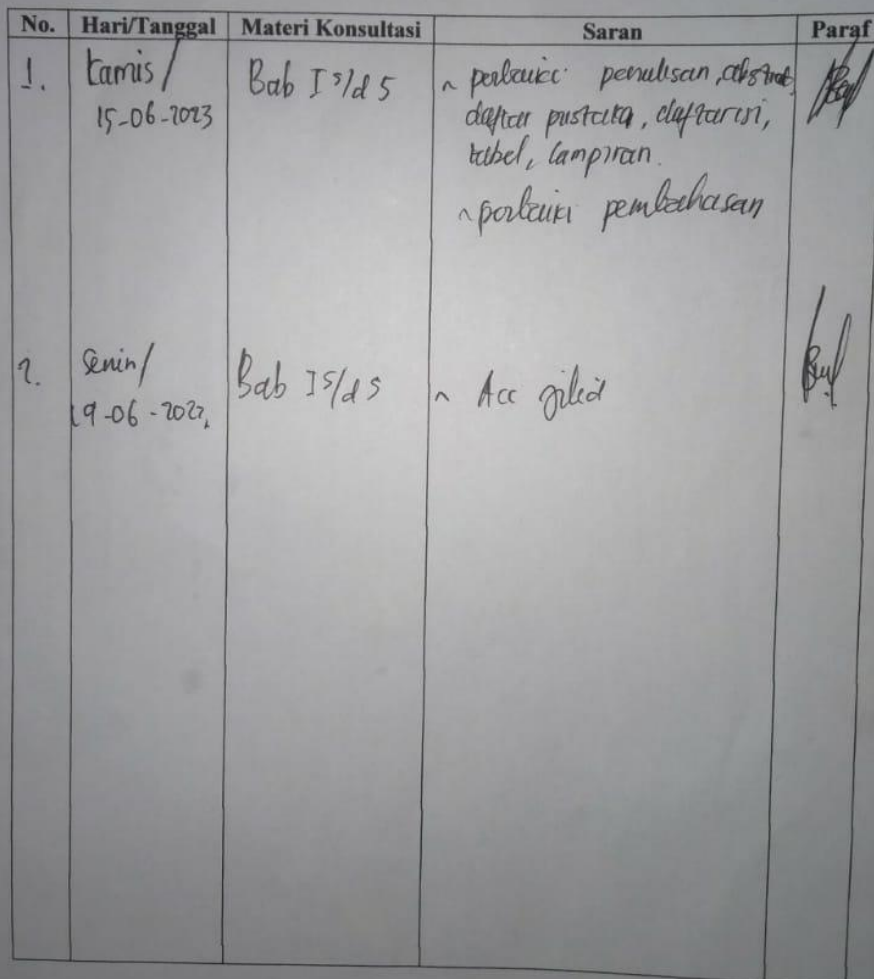 No. Hari/Tanggal Materi Konsultasi Saran Paraf
1. Kamis/ Bab I s/d 5 ~ perbaiki penulisan, abstrak,
15-06-2023 daftar pustaka, daftar isi,
tabel, lampiran.
~ perbaiki pembahasan
2. Senin/ Bab I s/d 5 ~ Acc jilid
19-06-2023